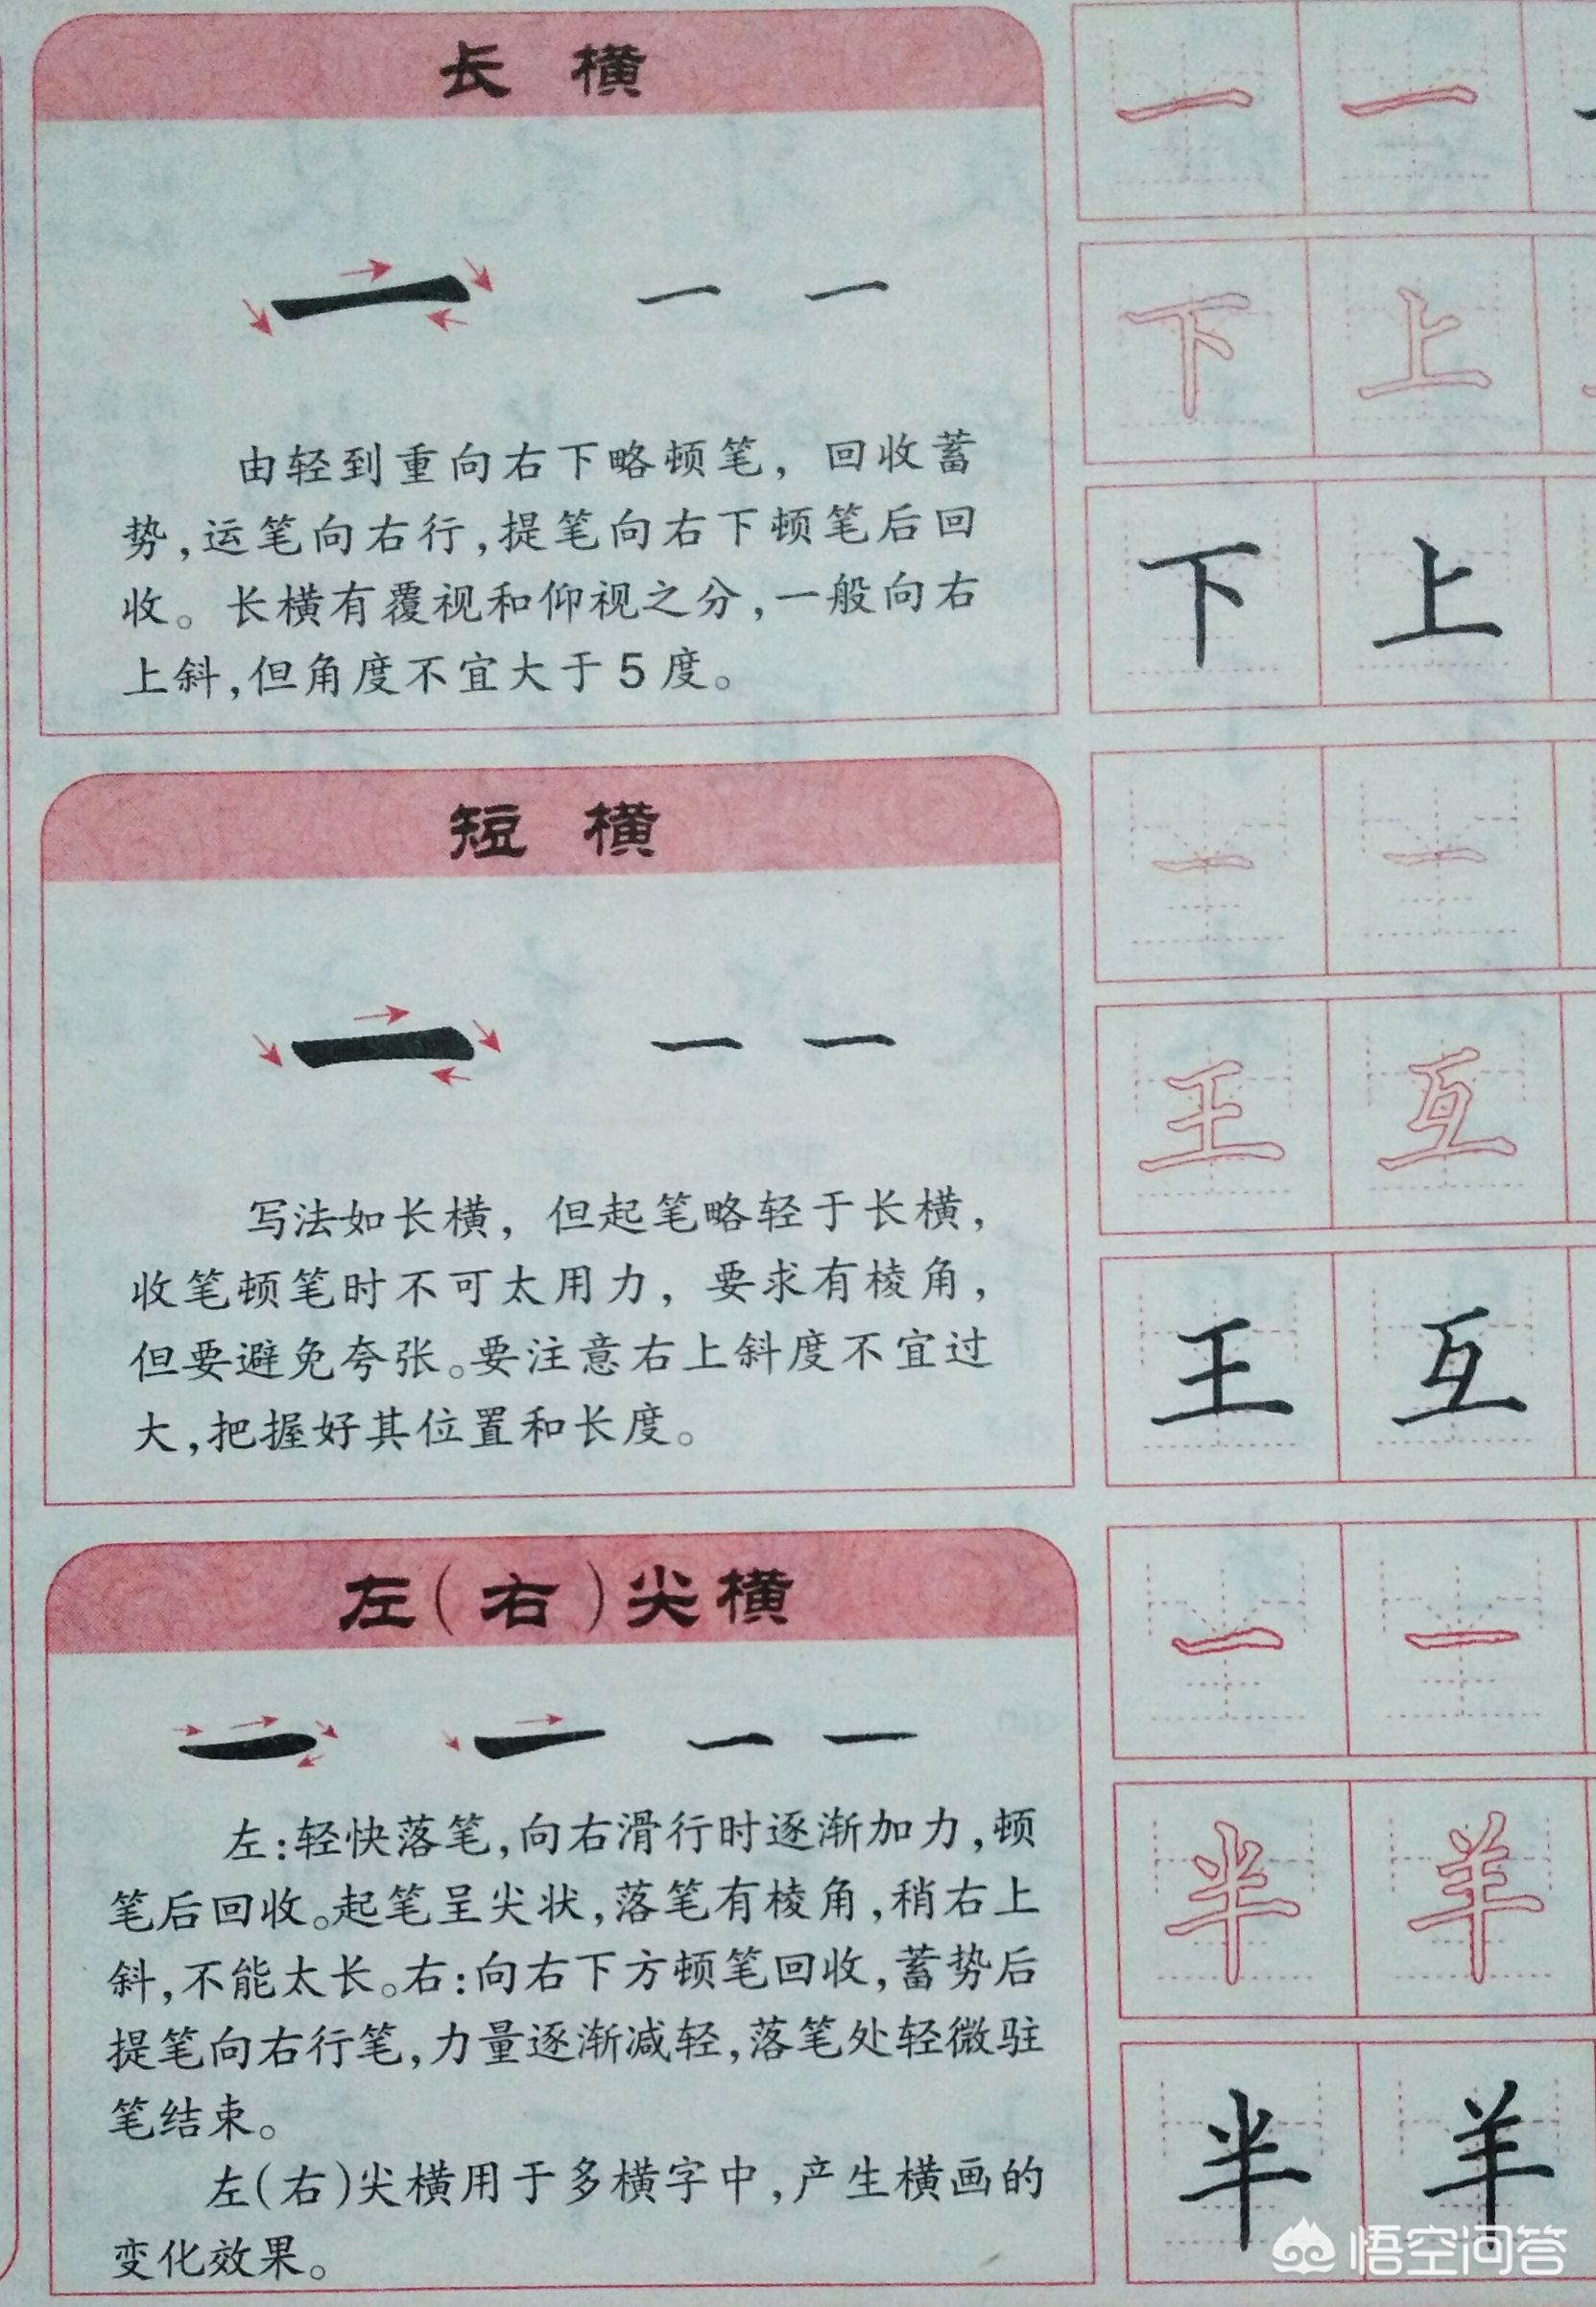 长横
由轻到重向右下略顿笔，回收蓄
势，运笔向右行，提笔向右下顿笔后回
收。长横有覆视和仰视之分，一般向右
上斜，但角度不宜大于5度。
一 一
下 上
下 上
短横
写法如长横，但起笔略轻于长横，
收笔顿笔时不可太用力，要求有棱角，
但要避免夸张。要注意右上斜度不宜过
大，把握好其位置和长度。
一 一
王 互
王 互
左(右)尖横
左:轻快落笔，向右滑行时逐渐加力，顿
笔后回收。起笔呈尖状，落笔有棱角，稍右上
斜，不能太长。右:向右下方顿笔回收，蓄势后
提笔向右行笔，力量逐渐减轻，落笔处轻微驻
笔结束。
左(右)尖横用于多横字中，产生横画的
变化效果。
一 一
半 羊
半 羊
悟空问答